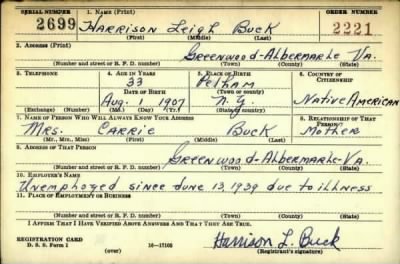 SERIAL NUMBER 1. NAME (Print) ORDER NUMBER
2699 HARRISON Leigh Buck 2221
(First) (Middle) (Last)
2. ADDRESS (Print)
Greenwood-Albermarle Va.
(Number and street or R. F. D. number) (Town) (County) (State)
3. TELEPHONE 4. AGE IN YEARS 5. PLACE OF BIRTH 6. COUNTRY OF CITIZENSHIP
33 Pelham
DATE OF BIRTH (Town or county)
Aug. 1 1907 N.Y. Native American
(Exchange) (Number) (Mo.) (Day) (Yr.) (State or country)
7. NAME OF PERSON WHO WILL ALWAYS KNOW YOUR ADDRESS 8. RELATIONSHIP OF THAT PERSON
Mrs. CARRIE Buck Mother
(Mr., Mrs., Miss) (First) (Middle) (Last)
9. ADDRESS OF THAT PERSON
Greenwood-Albermarle-Va.
(Number and street or R. F. D. number) (Town) (County) (State)
10. EMPLOYER'S NAME
Unemployed since June 13, 1939 due to illness
11. PLACE OF EMPLOYMENT OR BUSINESS
(Number and street or R. F. D. number) (Town) (County) (State)
I AFFIRM THAT I HAVE VERIFIED ABOVE ANSWERS AND THAT THEY ARE TRUE.
REGISTRATION CARD
D. S. S. Form 1 (over) 16-17105
Harrison L. Buck
(Registrant's signature)